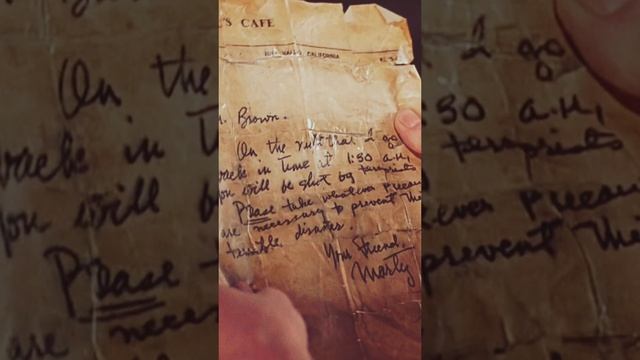 'S CAFE
CALIFORNIA
. Brown.
On the night that I go
back in Time at 1:30 a.m,
you will be shot by terrorists
Please take whatever precau
are necessary to prevent this
terrible disaster.
Your Friend,
Marty